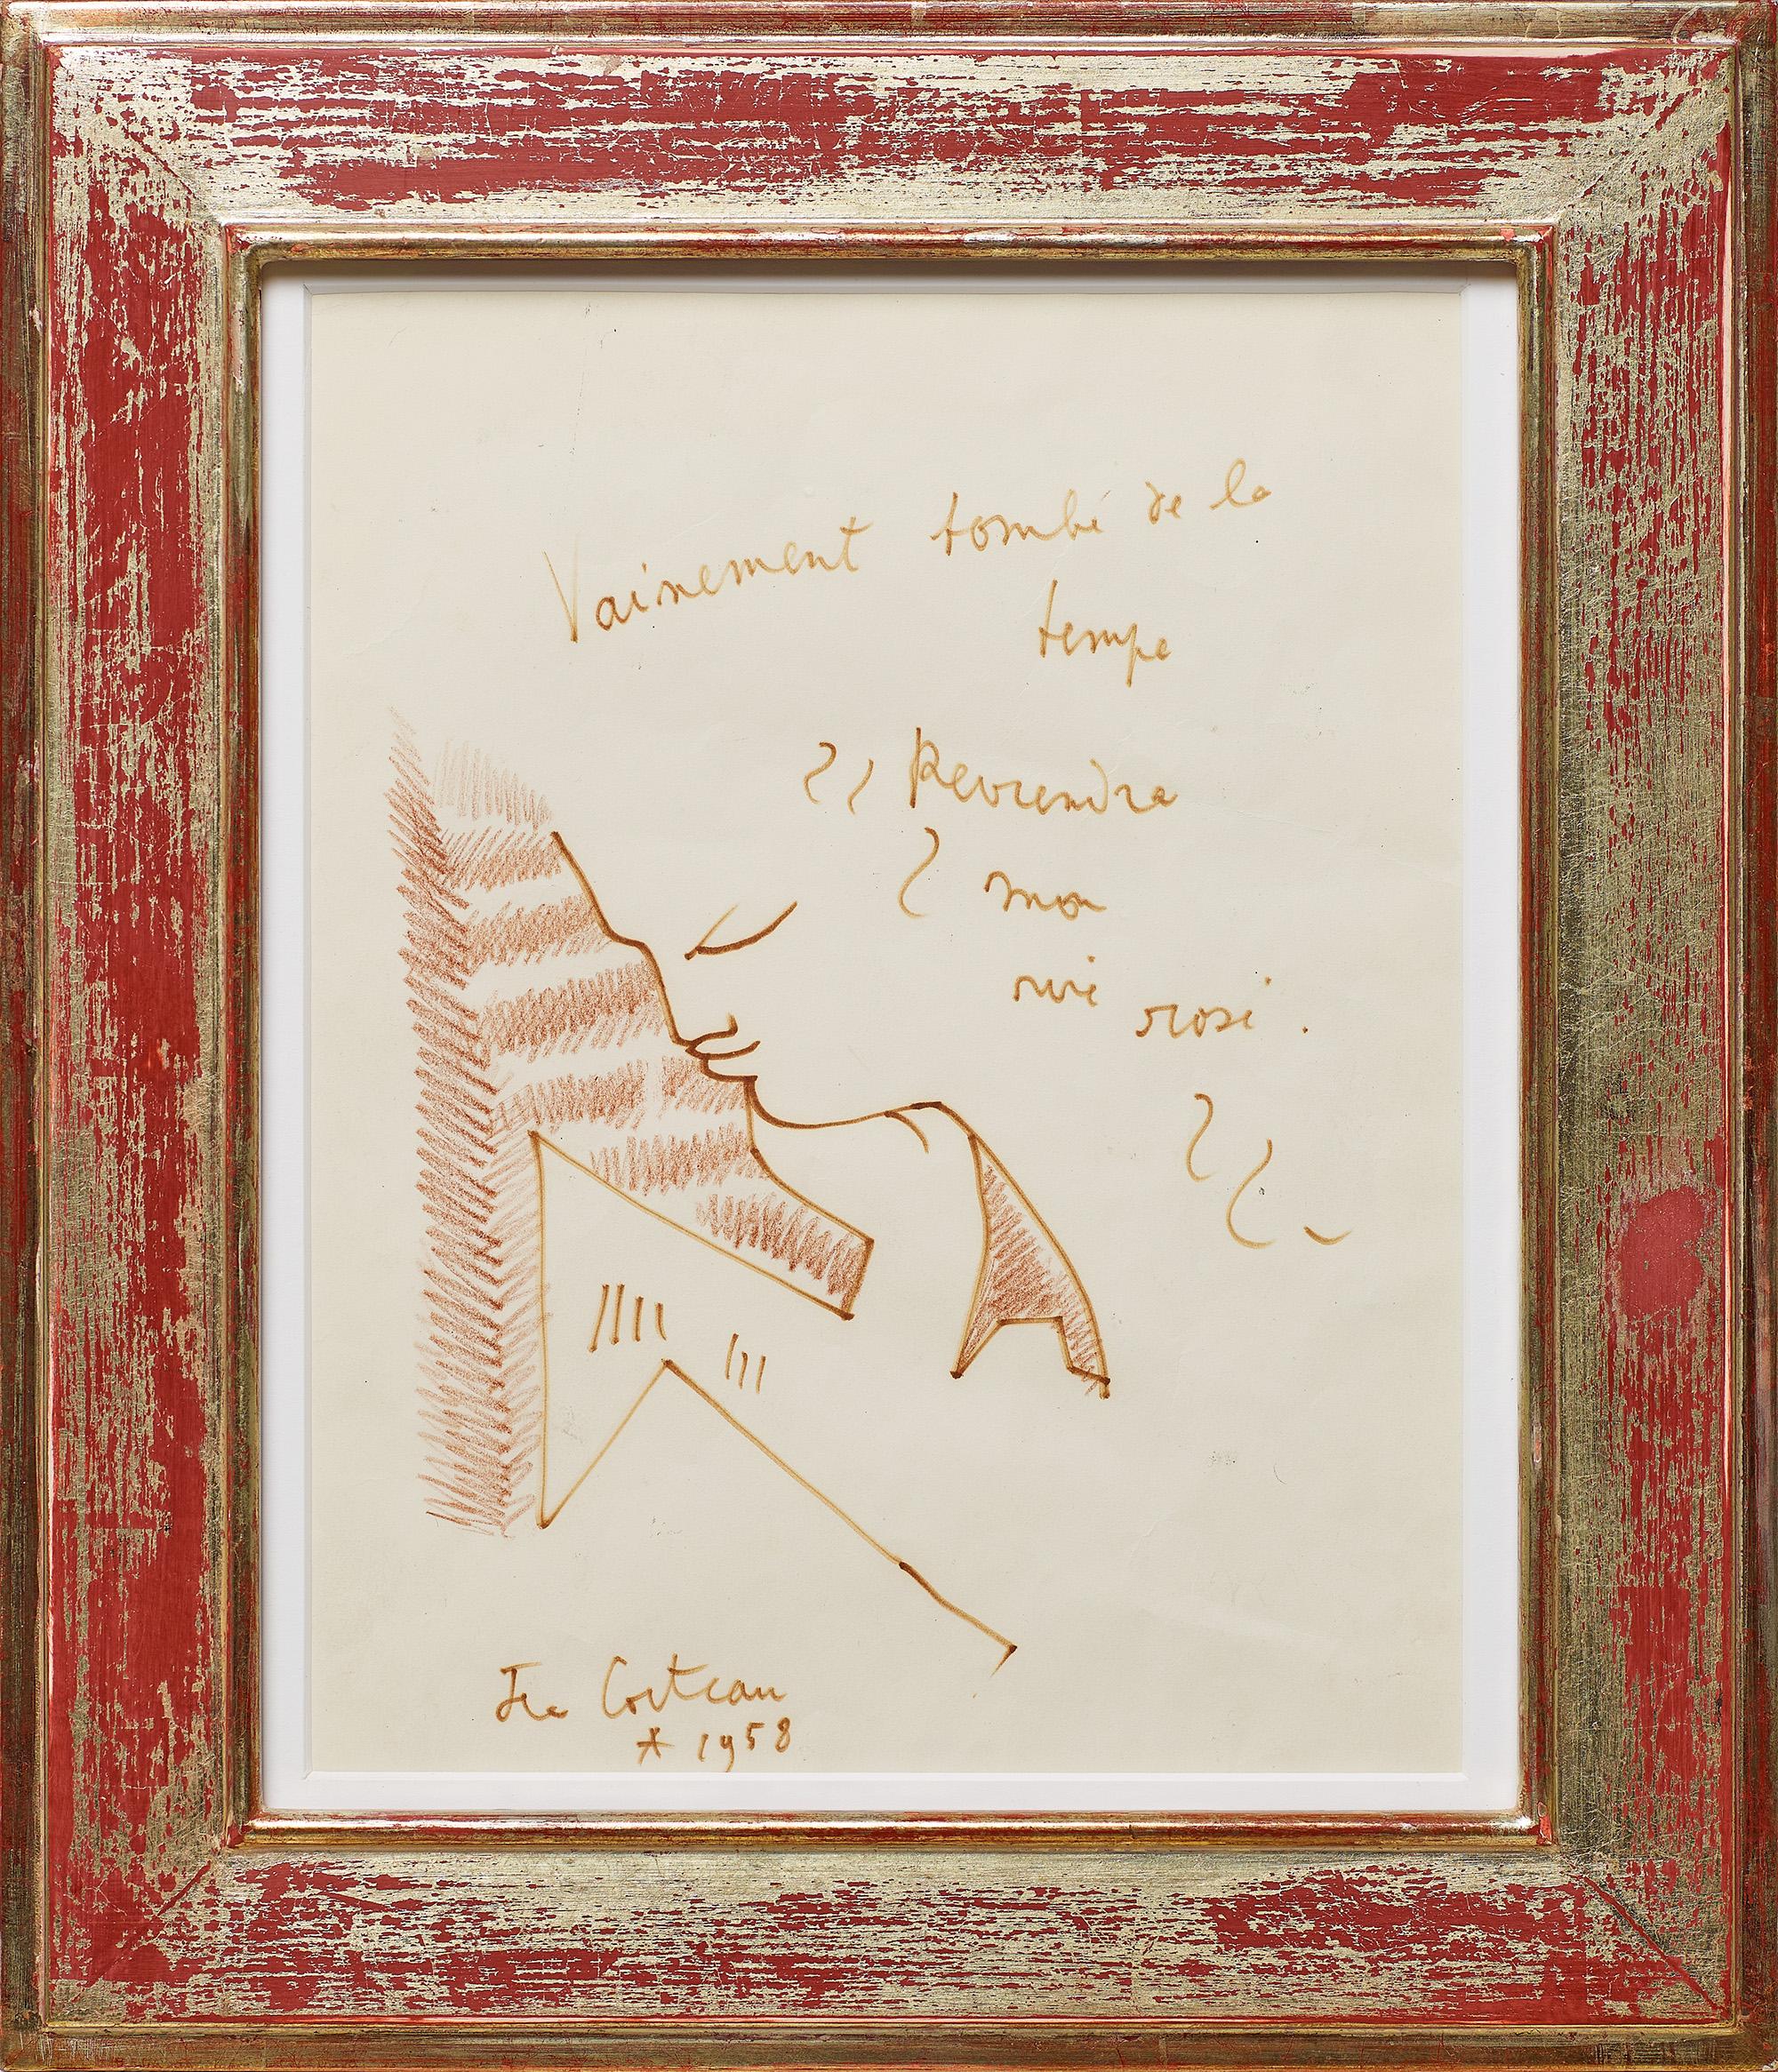 Vainement tombé de la
tempe
Reviendra
mon
rosé.
Jean Cocteau
* 1958